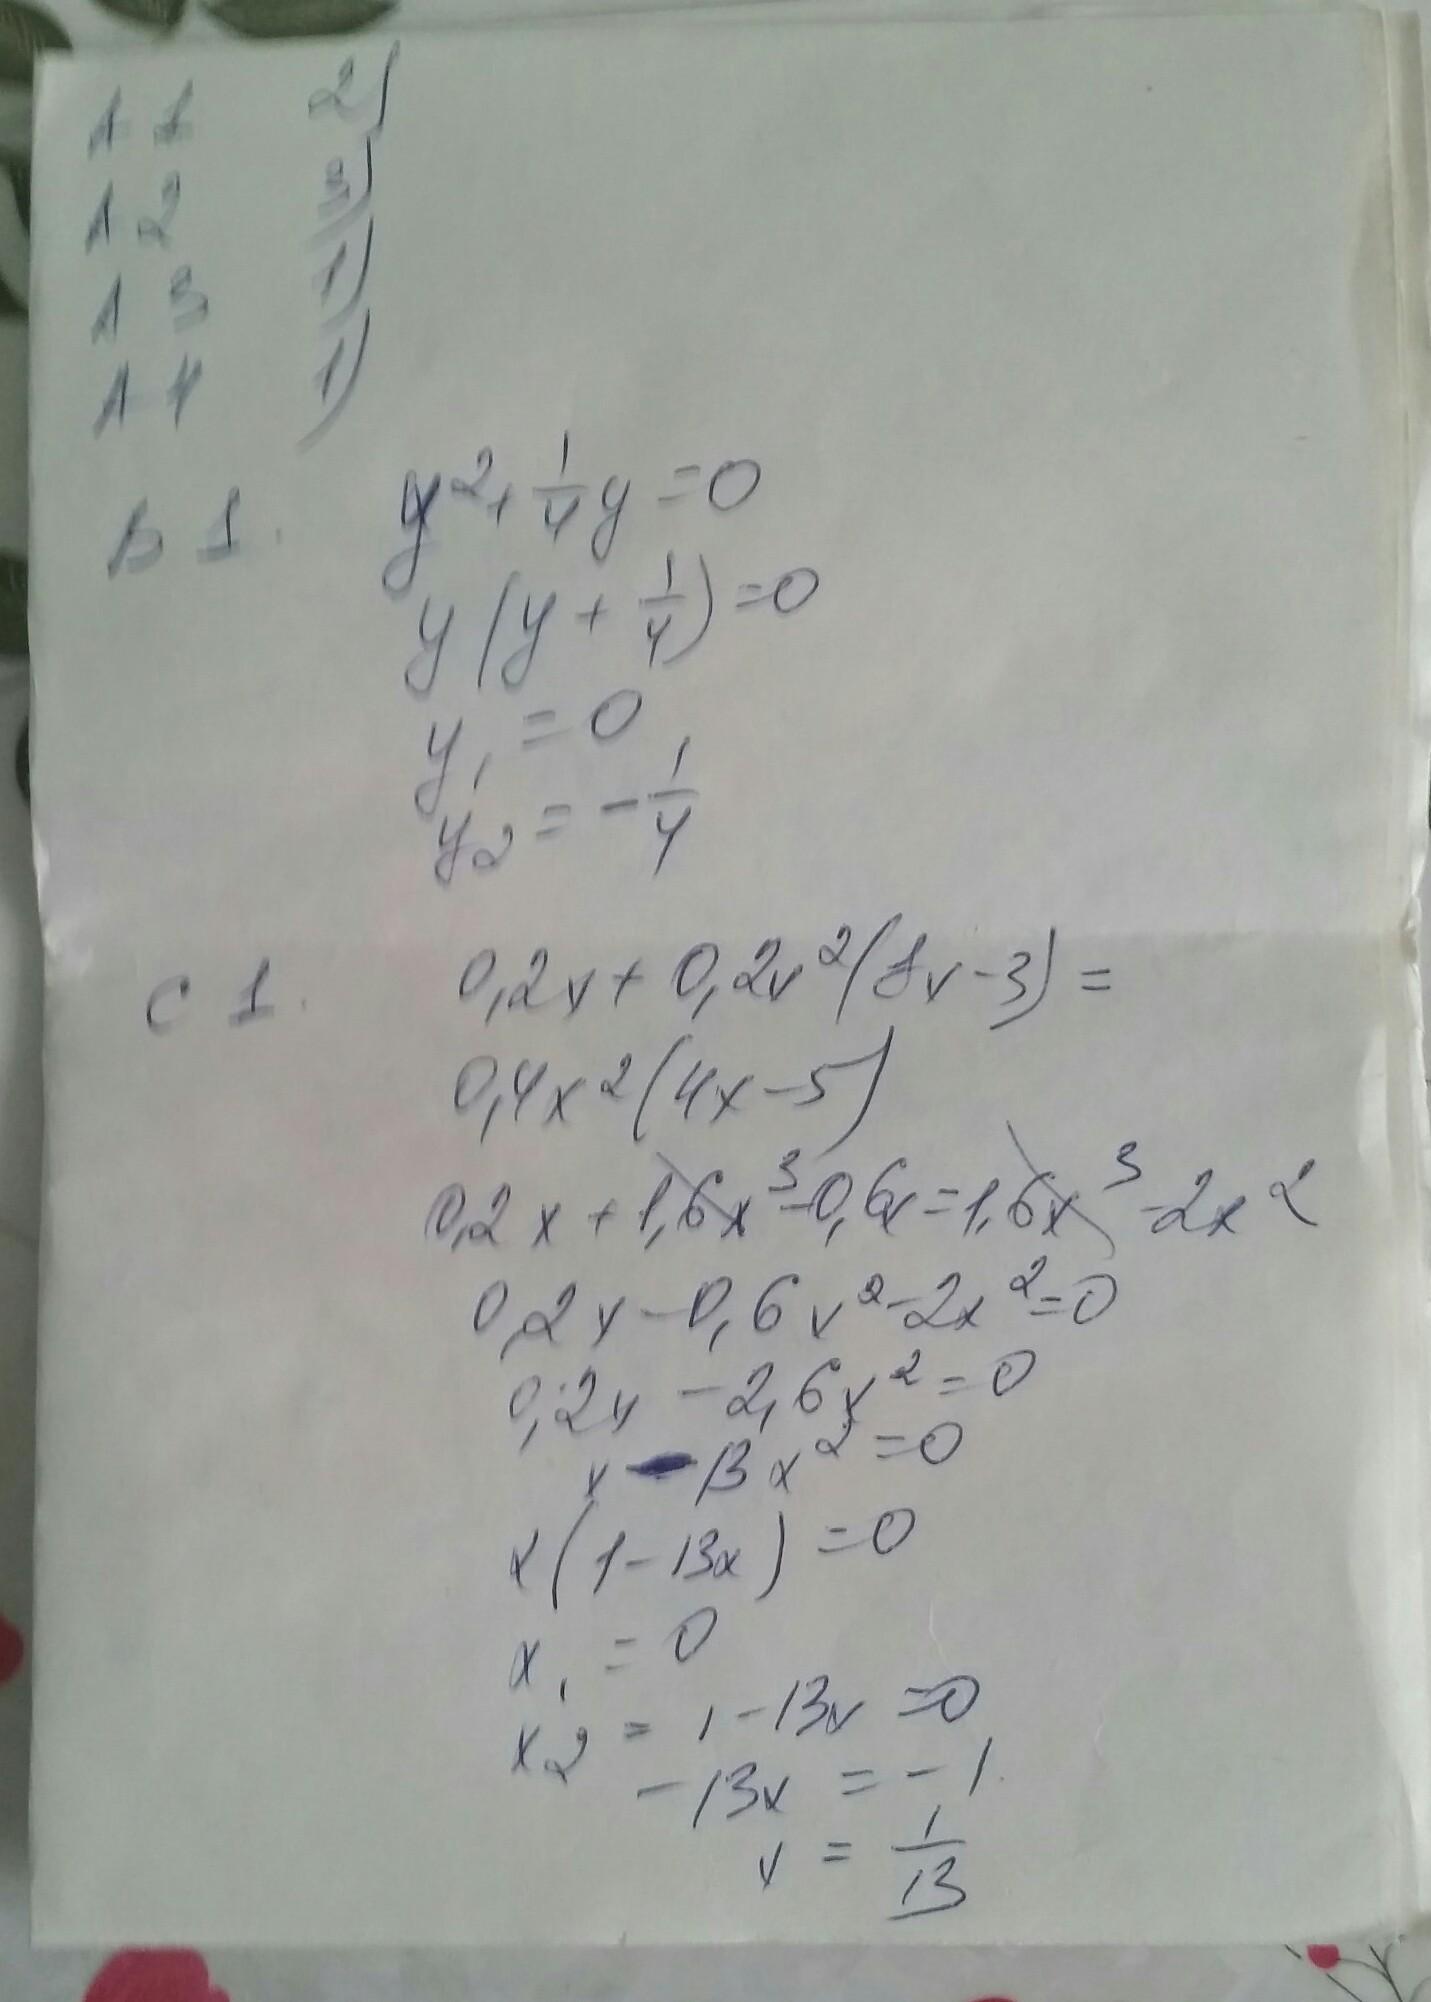 А 1 2)
А 2 3)
А 3 1)
А 4 1)
В 1. y² + 1/4 y = 0
y(y + 1/4) = 0
y₁ = 0
y₂ = - 1/4
С 1. 0,2x + 0,2x²(8x - 3) =
0,4x²(4x - 5)
0,2x + 1,6x³ - 0,6x = 1,6x³ - 2x²
0,2x - 0,6x² - 2x² = 0
0,2x - 2,6x² = 0
x - 13x² = 0
x(1 - 13x) = 0
x₁ = 0
x₂ = 1 - 13x = 0
-13x = -1
x = 1/13